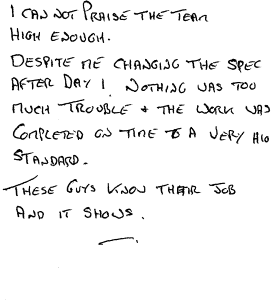 I CAN NOT PRAISE THE TEAM
HIGH ENOUGH.
DESPITE ME CHANGING THE SPEC
AFTER DAY 1. NOTHING WAS TOO
MUCH TROUBLE + THE WORK WAS
COMPLETED ON TIME TO A VERY HIG
STANDARD.
THESE GUYS KNOW THEIR JOB
AND IT SHOWS.